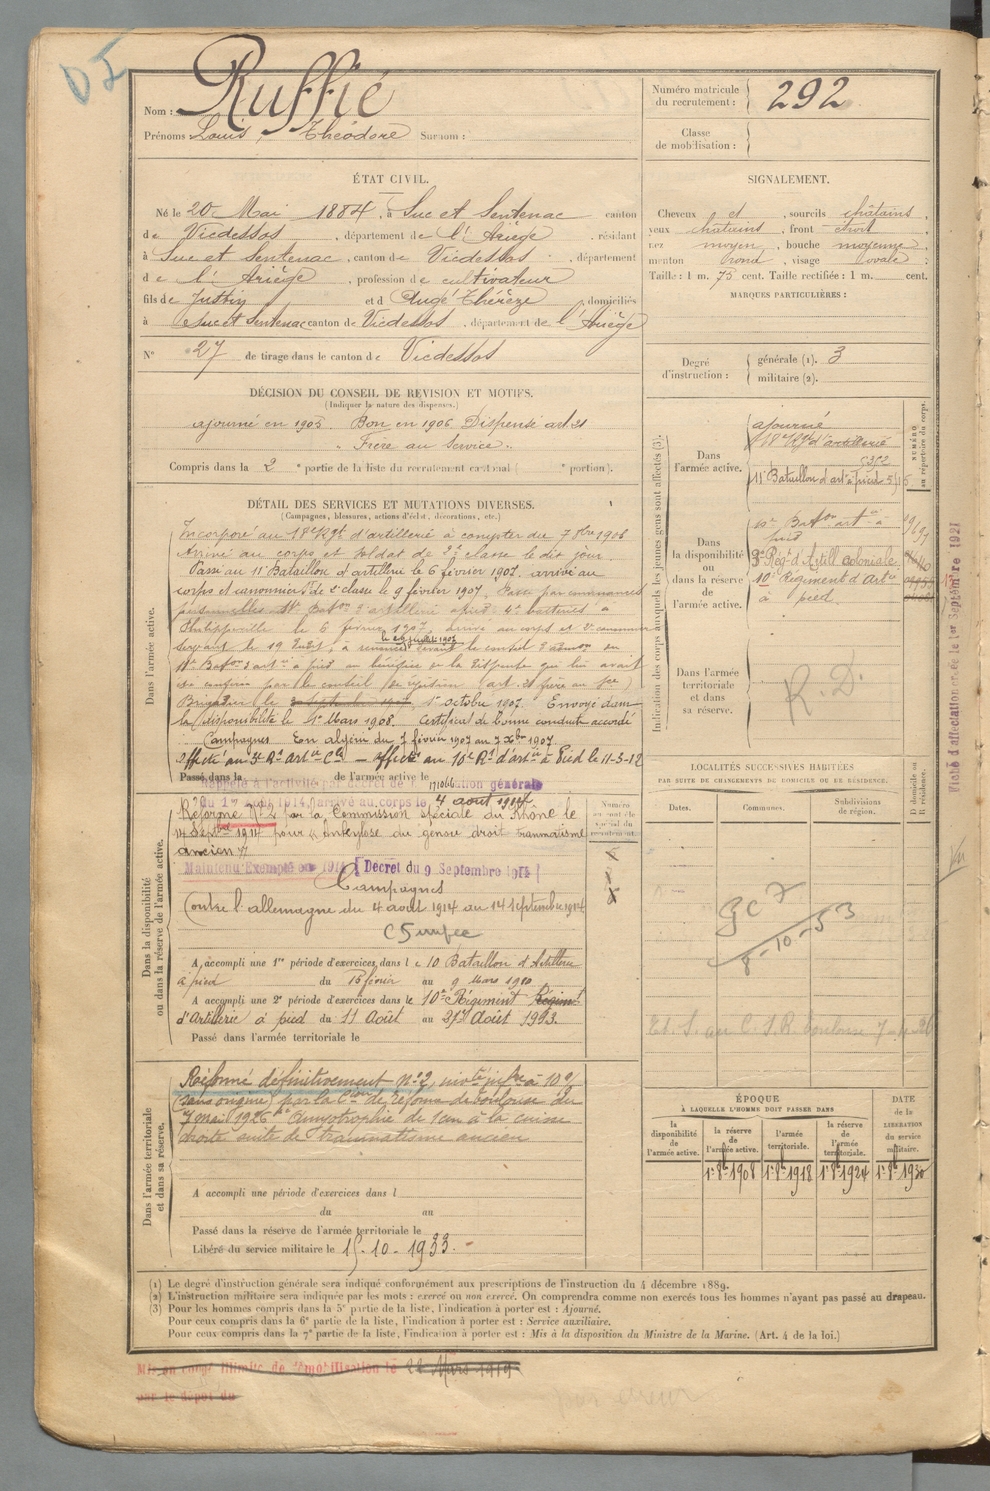 Nom : Ruffié
Prénoms Louis, Théodore Surnom :
Numéro matricule du recrutement : 292
Classe de mobilisation :
ÉTAT CIVIL.
Né le 20 Mai 1884, à Suc et Sentenac canton
de Vicdessos, département de l'Ariège, résidant
à Suc et Sentenac, canton de Vicdessos, département
de l'Ariège, profession de cultivateur
fils de Justin et d Augé Thérèze, domiciliés
à Suc et Sentenac canton de Vicdessos, département de l'Ariège
N° 27 de tirage dans le canton de Vicdessos
SIGNALEMENT.
Cheveux et, sourcils châtains,
yeux châtains, front étroit,
nez moyen, bouche moyenne,
menton rond, visage ovale,
Taille : 1 m. 75 cent. Taille rectifiée : 1 m. cent.
MARQUES PARTICULIÈRES :
Degré d'instruction : générale (1). 3
militaire (2).
DÉCISION DU CONSEIL DE REVISION ET MOTIFS.
(Indiquer la nature des dispenses.)
ajourné en 1905. Bon en 1906 Dispensé art. 21
" Frère au Service ".
Compris dans la 2 e partie de la liste du recrutement cantonal ( e portion).
DÉTAIL DES SERVICES ET MUTATIONS DIVERSES.
(Campagnes, blessures, actions d'éclat, décorations, etc.)
Dans l'armée active.
Incorporé au 18e Rgt d'artillerie à compter du 7 8bre 1906
Arrivé au corps et soldat de 2e classe le dit jour
Passé au 11e Bataillon d'artillerie le 6 février 1907. arrivé au
corps et canonnier de 2e classe le 9 février 1907.
Philippeville le 6 février 1907, arrivé au corps et 2e canonnier
servant le 19 dudit, a renoncé le 29 juillet 1907 devant le conseil d'admon du
11e Baton d'artie à pied au bénéfice de la dispense qui lui avait
été conférée par le conseil de révision (art. 21 frère au sce)
Brigadier le 1er octobre 1907. Envoyé dans
la disponibilité le 1er Mars 1908. Certificat de bonne conduite accordé
Campagnes En algérie du 7 février 1907 au 7 Xbre 1907
Affecté au 3e Rt artie Cle — affecté au 10e Rt d'artie à Pied le 11-5-12
Passé dans la de l'armée active le
Rappelé à l'activité par décret de mobilisation générale
du 1er août 1914, arrivé au corps le 4 août 1914
Réformé N°2 par la Commission spéciale du Rhône le
14 Septbre 1914 pour " Ankylose du genou droit traumatisme
ancien "
Maintenu Exempté en 1914 [Décret du 9 Septembre 1914]
Campagnes
Contre l'allemagne du 4 août 1914 au 14 septembre 1914
Dans la disponibilité ou dans la réserve de l'armée active.
A accompli une 1re période d'exercices dans le 10 Bataillon d'Artillerie
à pied du 15 février au 9 Mars 1910
A accompli une 2e période d'exercices dans le 10e Régiment
d'Artillerie à pied du 11 Août au 27 Août 1913.
Passé dans l'armée territoriale le
Dans l'armée territoriale et dans sa réserve.
Réformé définitivement n°2, invté infre à 10%
(sans origine) par la Con de réforme de Toulouse du
7 mai 1926 Amyotrophie de 1cm à la cuisse
droite suite de traumatisme ancien
A accompli une période d'exercices dans l
du au
Passé dans la réserve de l'armée territoriale le
Libéré du service militaire le 15-10-1933.
Indication des corps auxquels les jeunes gens sont affectés (3).
NUMÉRO au répertoire du corps.
Dans l'armée active.
ajourné
18e Rgt d'artillerie
11e Bataillon d'arte à pied
Dans la disponibilité ou dans la réserve de l'armée active.
Baton artie à
pied
3e Régt d'Artill coloniale
10 Régiment d'Artie
à pied
Dans l'armée territoriale et dans sa réserve.
R.D.
Fiche d'affectation créée le 1er Septembre 1921
LOCALITÉS SUCCESSIVES HABITÉES
PAR SUITE DE CHANGEMENTS DE DOMICILE OU DE RÉSIDENCE.
Dates. Communes. Subdivisions de région. D domicile ou R résidence.
GC 7
8-10-53
ÉPOQUE
À LAQUELLE L'HOMME DOIT PASSER DANS
la disponibilité de l'armée active. la réserve de l'armée active. l'armée territoriale. la réserve de l'armée territoriale.
DATE de la LIBÉRATION du service militaire.
1er 8bre 1908 1er 8bre 1918 1er 8bre 1924 1er 8bre 1930
(1) Le degré d'instruction générale sera indiqué conformément aux prescriptions de l'instruction du 4 décembre 1889.
(2) L'instruction militaire sera indiquée par les mots : exercé ou non exercé. On comprendra comme non exercés tous les hommes n'ayant pas passé au drapeau.
(3) Pour les hommes compris dans la 5e partie de la liste, l'indication à porter est : Ajourné.
Pour ceux compris dans la 6e partie de la liste, l'indication à porter est : Service auxiliaire.
Pour ceux compris dans la 7e partie de la liste, l'indication à porter est : Mis à la disposition du Ministre de la Marine. (Art. 4 de la loi.)
Mis en congé illimité de démobilisation le 22 Mars 1919
par le dépôt du
par erreur